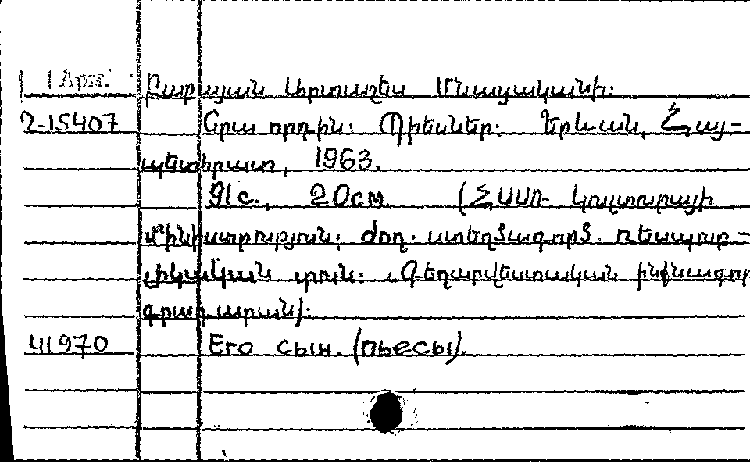 1 Арм. Քալայան Արտաշես Մնացականի.
2-15407 Նրա որդին: Պիեսներ: Երևան, Հայ-
պետհրատ, 1963.
91 с., 20 см (ՀՍՍՌ Կուլտուրայի
մինիստրություն: ժող. ստեղծագործ. ռեսպուբ-
լիկական տուն: Գեղարվեստական ինքնագոր
գրադարան):
41970 Его сын. (пьесы).